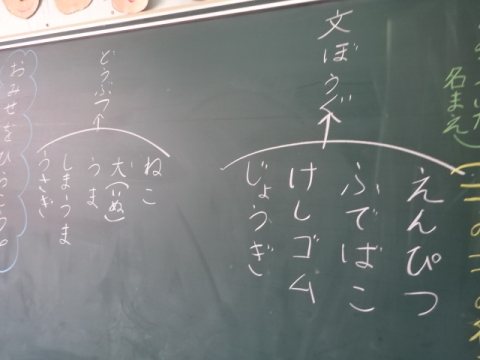 名まえ
文ぼうぐ
えんぴつ
ふでばこ
けしゴム
じょうぎ
どうぶつ
ねこ
犬(いぬ)
うま
しまうま
うさぎ
おみせをひらこう。